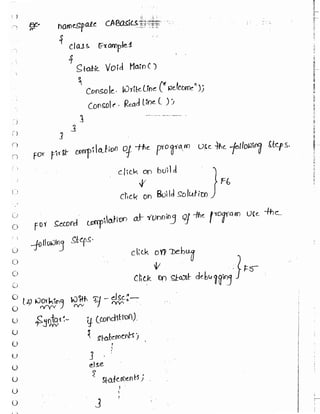 Ex:- namespace CABasics
{
class Example1
{
Static Void Main( )
{
Console. WriteLine ("Welcome");
Console. ReadLine ( );
}
}
}
For first compilation of the program use the following steps.
click on build
↓
Click on Build Solution } F6
For Second compilation at running of the program use the
following steps.
click on Debug
↓
Click on Start debugging } F5
Working with if - else:-
Syntax:- if (condition)
{
statements;
}
else
{
Statements;
}